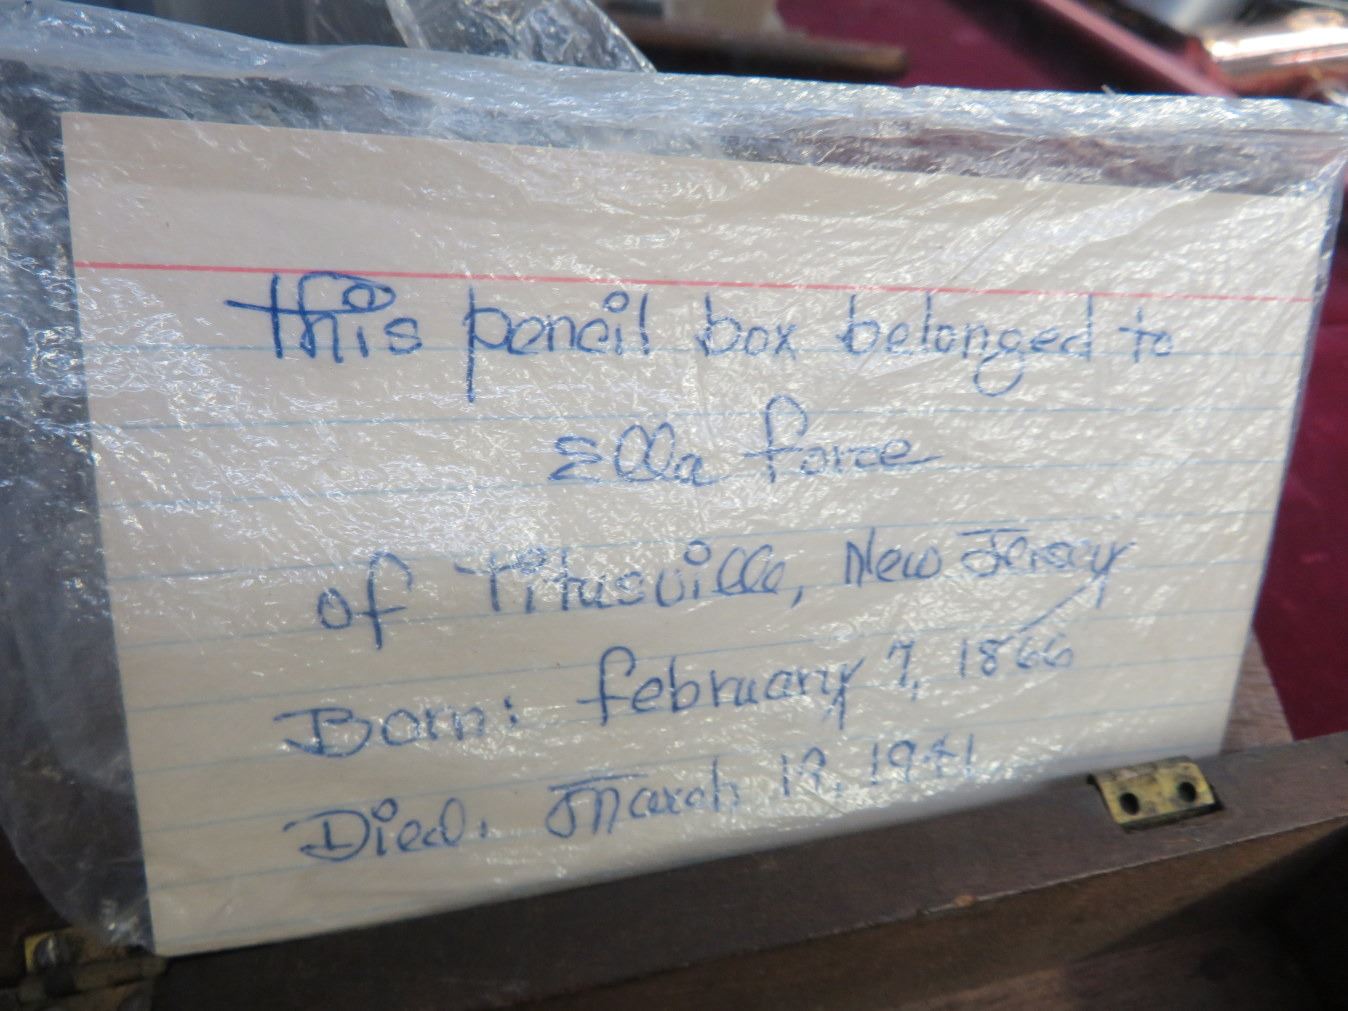 This pencil box belonged to
Ella Force
of Titusville, New Jersey
Born: February 7, 1866
Died: March 19, 1941